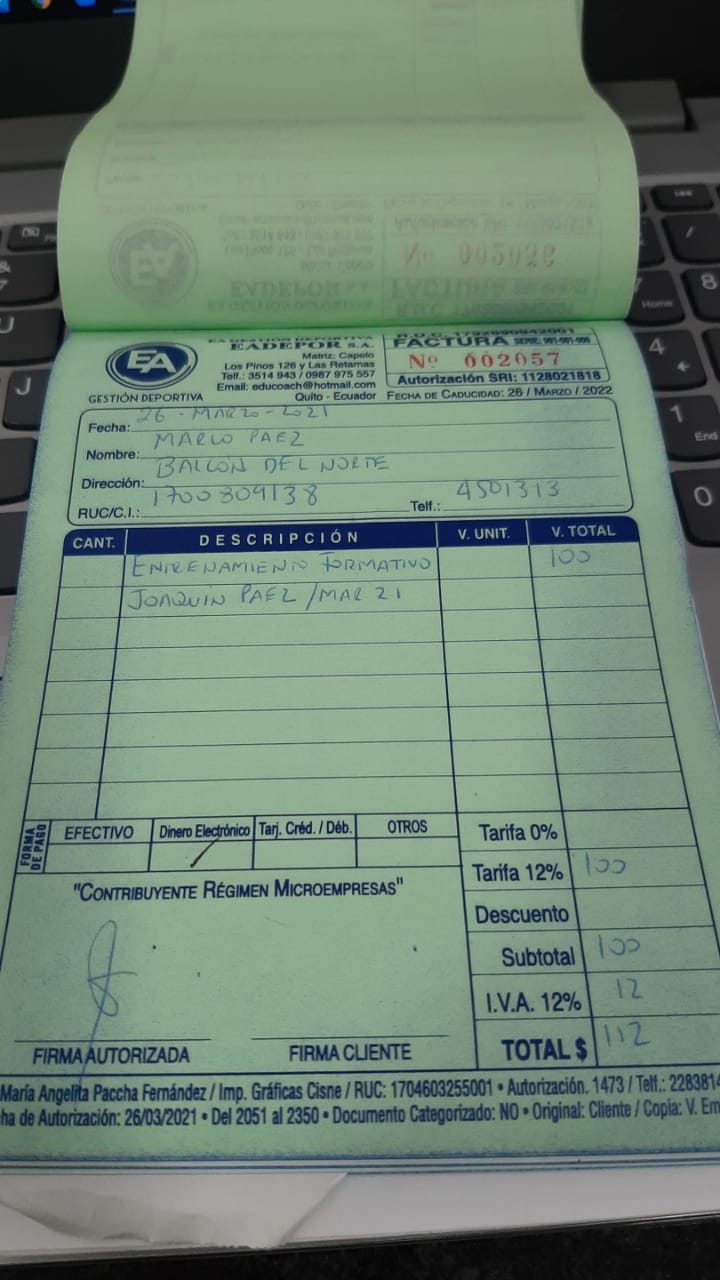 EA
GESTIÓN DEPORTIVA
EADEPOR S.A.
Matriz: Capelo
Los Pinos 126 y Las Retamas
Telf.: 3514 943 / 0987 975 557
Email: educoach@hotmail.com
Quito - Ecuador
FACTURA SERIE: 001-001-000
Nº 002057
Autorización SRI: 1128021818
FECHA DE CADUCIDAD: 26 / MARZO / 2022
Fecha: 26 - MARZO - 2021
Nombre: MARCO PAEZ
Dirección: BALCON DEL NORTE
RUC/C.I.: 1700809138 Telf.: 4501313
CANT. DESCRIPCIÓN V. UNIT. V. TOTAL
ENTRENAMIENTO FORMATIVO 100
JOAQUIN PAEZ / MAR 21
FORMA DE PAGO
EFECTIVO Dinero Electrónico Tarj. Créd. / Déb. OTROS
Tarifa 0%
Tarifa 12% 100
"CONTRIBUYENTE RÉGIMEN MICROEMPRESAS"
Descuento
Subtotal 100
I.V.A. 12% 12
TOTAL $ 112
FIRMA AUTORIZADA FIRMA CLIENTE
María Angelita Paccha Fernández / Imp. Gráficas Cisne / RUC: 1704603255001 • Autorización. 1473 / Telf.: 2283814
ha de Autorización: 26/03/2021 • Del 2051 al 2350 • Documento Categorizado: NO • Original: Cliente / Copia: V. Em